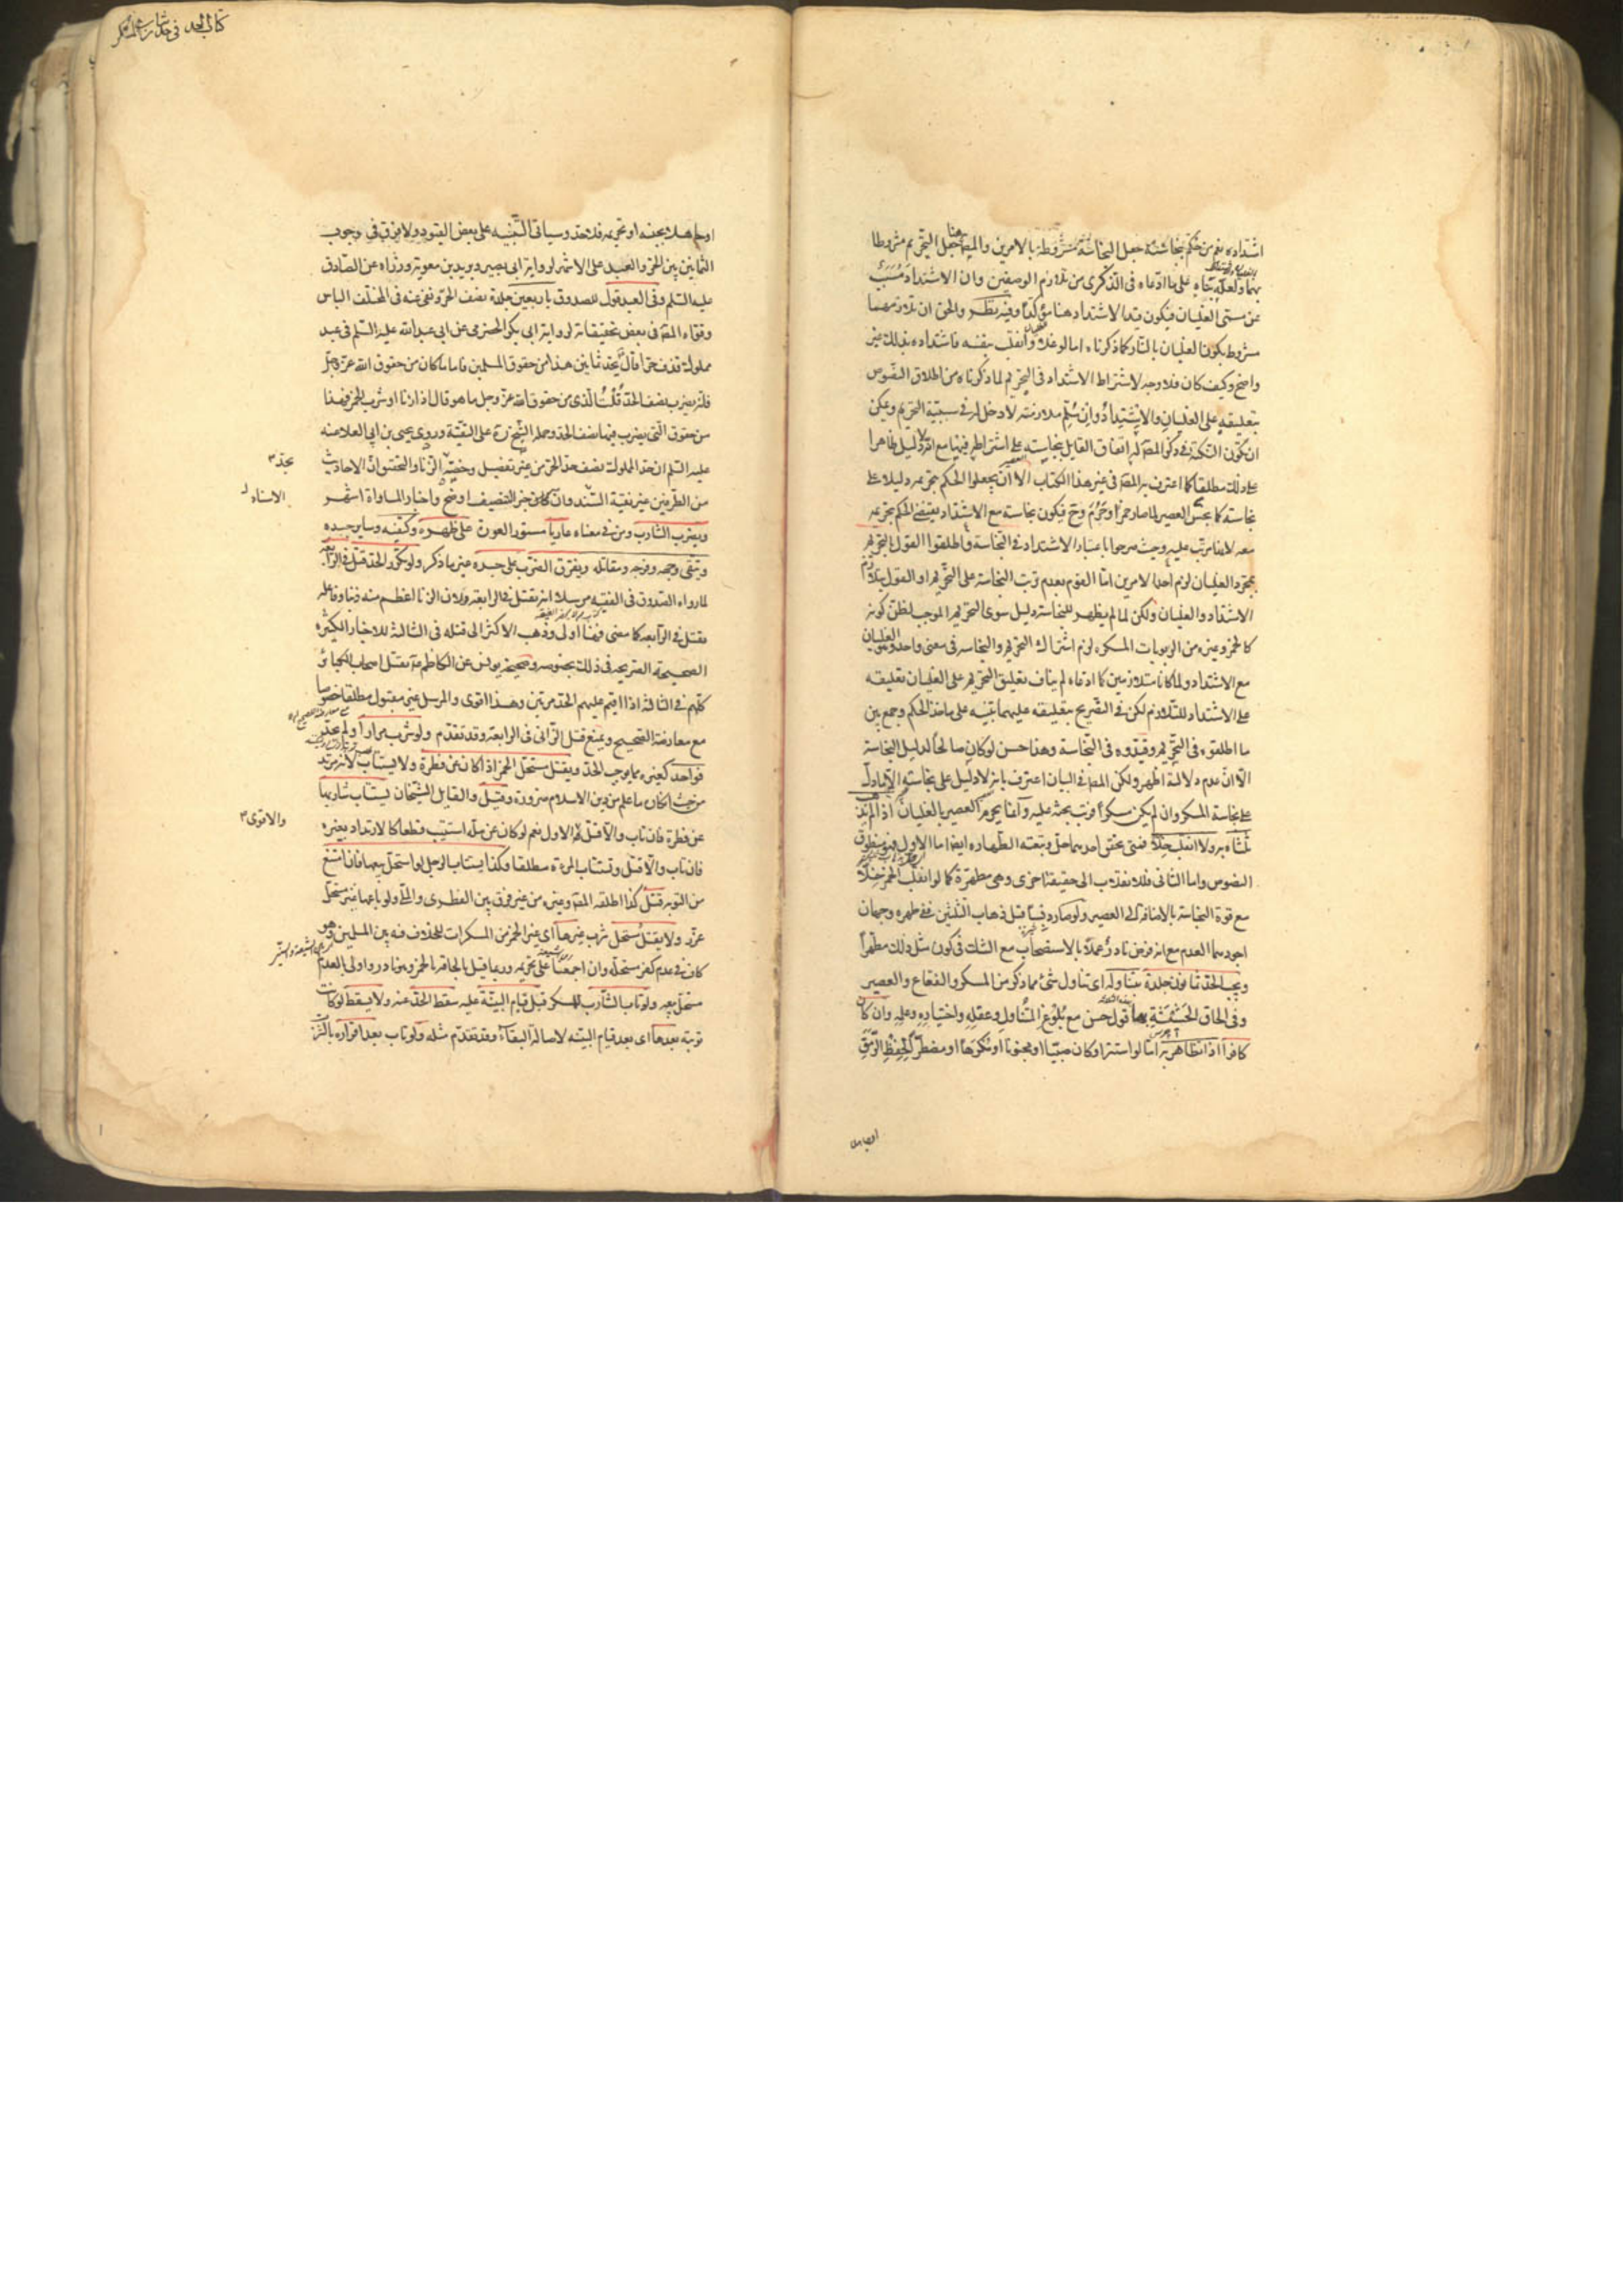 اشتداده نعم من حكم بنجاسته جعل النجاسة مشروطة بالامرين والمص هنا جعل التحريم مشروطا
بهما ولعله بناه على ما ادعاه فى الذكرى من تلازم الوصفين وان الاشتداد مسبب
عن مسمى الغليان فيكون قيد الاشتداد هنا مؤكدا وفيه نظر والحق ان تلازمهما
مشروط بكون الغليان بالنار كما ذكرناه اما لو غلا وانقلب بنفسه فاشتداده بذلك غير
واضح وكيف كان فلا وجه لاشتراط الاشتداد فى التحريم لما ذكرناه من اطلاق النصوص
بتعليقه على الغليان والاشتداد وان سلم ملازمته لا دخل له فى سببية التحريم ويمكن
ان تكون النكتة فى ذكر المص له اتفاق القايل بنجاسته على اشتراطه فيها مع انه لا دليل ظاهرا
على ذلك مطلقا كما اعترف به المص فى غير هذا الكتاب الا ان يجعلوا الحكم بتحريمه دليلا على
نجاسته كما ينجس العصير لما صار خمرا وحرم وح فيكون نجاسته مع الاشتداد يقتضى الحكم بتحريمه
معه لانها مرتب عليه وحيث صرحوا باعتبار الاشتداد فى النجاسة واطلقوا القول بالتحريم
بمجرد الغليان لزم احد الامرين اما القوم بعدم ترتب النجاسة على التحريم او القول بتلازم
الاشتداد والغليان ولكن لما لم يظهر للنجاسة دليل سوى التحريم الموجب لظن كونه
كالخمر وغيره من الربوبات المسكره لزم اشتراك التحريم والنجاسه فى معنى واحد وهو الغليان
مع الاشتداد ولما كانا متلازمين كما ادعاه لم يناف تعليق التحريم على الغليان تعليقه
على الاشتداد للتلازم لكن فى التصريح بتعليقه عليهما تنبيه على ماخذ الحكم وجمع بين
ما اطلقوه فى التحريم وقيدوه فى النجاسة وهذا حسن لو كان صالحا لدليل النجاسة
الا ان عدم دلالته اظهر ولكن المص فى البيان اعترف بانه لا دليل على نجاسته الا ما دل
على نجاسة المسكر وان لم يكن مسكرا فرتب بحثه عليه وانما يحرم العصير بالغليان اذا لم يذهب
ثلثاه به ولا انقلب خلا فمتى تحقق احدهما حل وتبعته الطهاره ايضا اما الاول فهو منطوق
النصوص واما الثانى فللانقلاب الى حقيقة اخرى وهى مطهرة كما لو انقلب الخمر خلا
مع قوة النجاسة بالاضافة الى العصير ولو صار دبسا قبل ذهاب الثلثين ففى طهره وجهان
اجودهما العدم مع انه فرض نادر عملا بالاستصحاب مع الشك فى كون مثل ذلك مطهرا
ويجب الحد ثمانون جلدة بتناوله اى تناول شئ مما ذكر من المسكر والفقاع والعصير
وفى الحاق الحشيشة بها قول حسن مع بلوغ المتناول وعقله واختياره وعلمه وان كان
كافرا اذا تظاهر به اما لو استتر او كان صبيا او مجنونا او مكرها او مضطرا لحفظ الرمق
كتاب الحد فى حد شارب المسكر
او جاهلا بجنسه او تحريمه فلا حد وسياتى التنبيه على بعض القيود ولا فرق فى وجوب
الثمانين بين الحر والعبد على الاشهر لرواية ابى بصير وبريد بن معويه وزراه عن الصادق
عليه السلم وفى العبد قول للصدوق باربعين جلدة نصف الحر ونفى عنه فى المختلف الباس
وقواه المص فى بعض تحقيقاته لرواية ابى بكر الحضرمى عن ابى عبد الله عليه السلم فى عبد
مملوك قذف حرا قال يحد ثمانين هذا من حقوق المسلمين فاما ما كان من حقوق الله عز وجل
فانه يضرب نصف الحد قلت الذى من حقوق الله عز وجل ما هو قال اذا زنا او شرب الخمر فهذا
من حقوق التى يضرب فيها نصف الحد وحمله الشيخ ره على التقية وروى يحيى بن ابى العلا عنه
عليه السلم ان حد المملوك نصف حد الحر من غير تفصيل وخصه الزنا والتحقيق ان الاحاديث
من الطرفين غير نقية السند وان كان خبر التنصيف اوضح واخبار المساواة اشهر
الاسناد
ويضرب الشارب ومن فى معناه عاريا مستور العورة على ظهره وكتفه وساير جسده
ويتقى وجهه وفرجه ومقاتله ويفرق الضرب على جسده غير ما ذكر ولو تكرر الحد قتل فى الرابعة
لما رواه الصدوق فى الفقيه مرسلا انه يقتل فى الرابعة ولان الزنا اعظم منه ذنبا وفاعله
يقتل فى الرابعه كما مضى فهنا اولى وذهب الاكثر الى قتله فى الثالثة للاخبار الكثيره
الصحيحة الصريحه فى ذلك بخصوصه وصحيحة يونس عن الكاظم ع يقتل اصحاب الكبائر
كلهم فى الثالثة اذا اقيم عليهم الحد مرتين وهذا اقوى والمرسل غير مقبول مطلقا خصوصا
مع معارضة الصحيح ويمنع قتل الزانى فى الرابعة وقد تقدم ولو شرب مرارا ولم يحد
فواحد كغيره مما يوجب الحد ويقتل مستحل الخمر اذا كان عن فطرة ولا يستتاب لانه مرتد
من حيث انكاره ما علم من دين الاسلام ضرورة وقيل والقايل الشيخان يستتاب شاربها
عن فطرة فان تاب والا قتل الاول نعم لو كان عن مله استتيب قطعا كالارتداد بغيره
والاقوى
فان تاب والا قتل وتستتاب المرءة مطلقا وكذا يستتاب الرجل لو استحل بيعها فان امتنع
من التوبه قتل كذا اطلقه المص وغيره من غير فرق بين الفطرى والملى ولو باعها غير مستحل
عزر ولا يقتل مستحل شرب غيرها اى غير الخمر من المسكرات للخلاف فيه بين المسلمين وهو
كاف فى عدم كفر مستحله وان اجمعنا على تحريمه وربما قيل بالحاقه بالخمر وهو نادر واولى بالعدم
مستحل بيعه ولو تاب الشارب للمسكر قبل قيام البينة عليه سقط الحد عنه ولا يسقط لو كانت
توبته بعدها اى بعد قيام البينه لاصالة البقاء وقد تقدم مثله ولو تاب بعد اقراره بالشرب